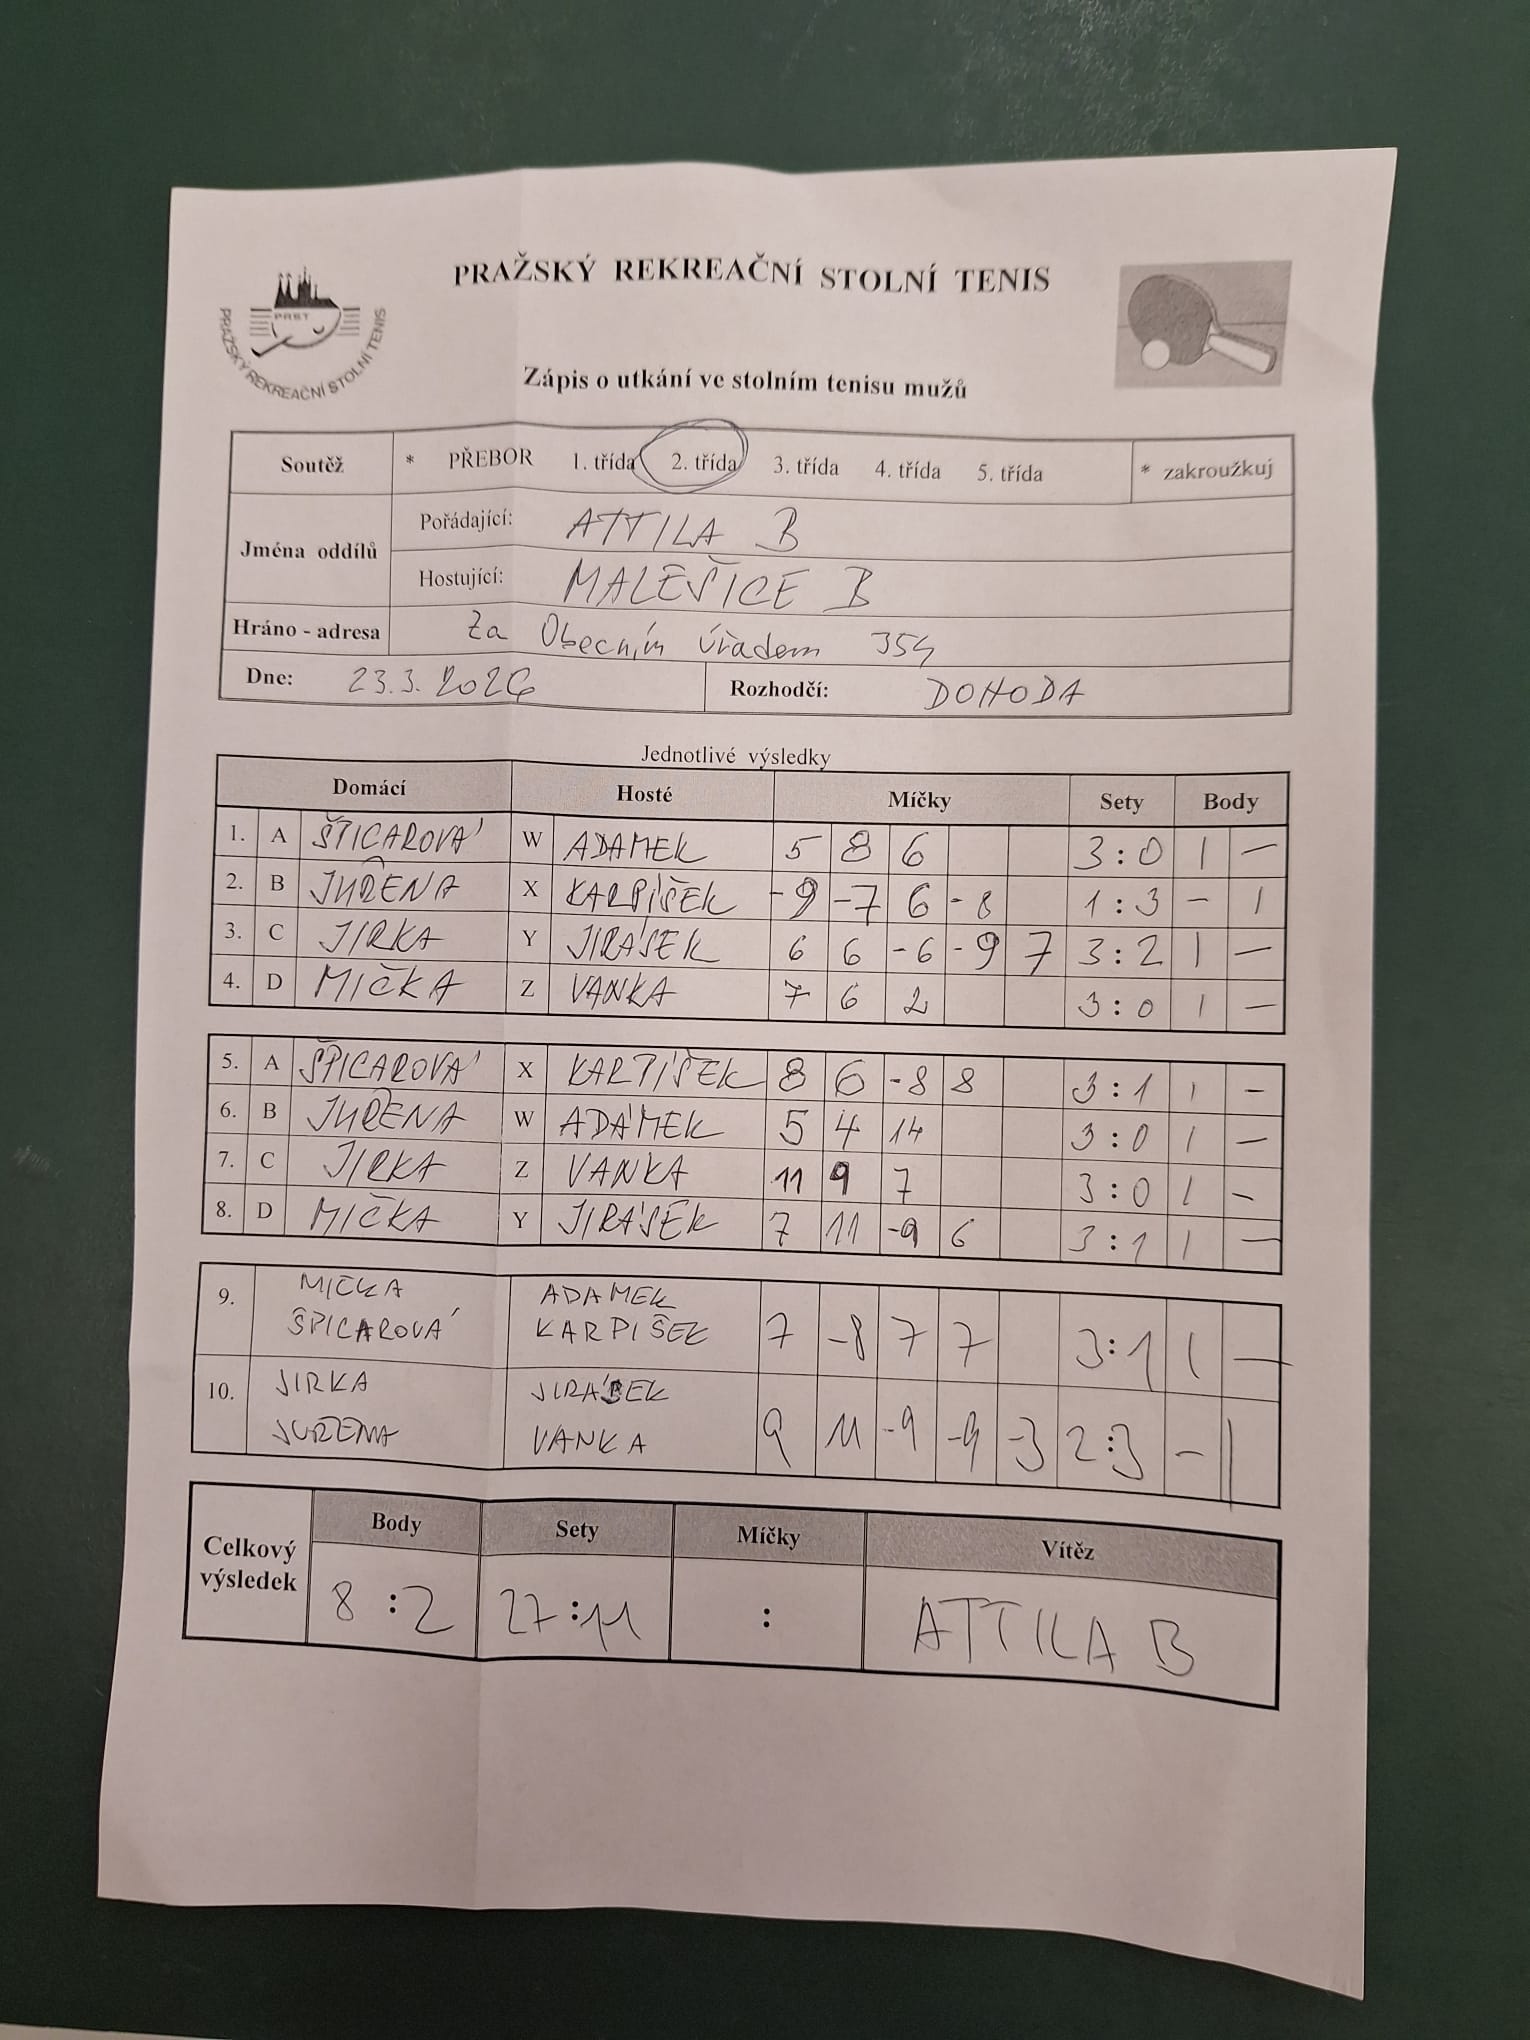 PRAŽSKÝ REKREAČNÍ STOLNÍ TENIS
PRST
PRAŽSKÝ REKREAČNÍ STOLNÍ TENIS
Zápis o utkání ve stolním tenisu mužů
Soutěž * PŘEBOR 1. třída 2. třída 3. třída 4. třída 5. třída * zakroužkuj
Jména oddílů
Pořádající: ATTILA B
Hostující: MALEŠICE B
Hráno - adresa Za Obecním úřadem 354
Dne: 23.3. 2026 Rozhodčí: DOHODA
Jednotlivé výsledky
Domácí Hosté Míčky Sety Body
1. A ŠPICAROVÁ W ADAMEK 5 8 6 3:0 1 –
2. B JUŘENA X KARPÍŠEK -9 -7 6 -8 1:3 – 1
3. C JIRKA Y JIRÁSEK 6 6 -6 -9 7 3:2 1 –
4. D MIČKA Z VANKA 7 6 2 3:0 1 –
5. A ŠPICAROVÁ X KARPÍŠEK 8 6 -8 8 3:1 1 –
6. B JUŘENA W ADÁMEK 5 4 14 3:0 1 –
7. C JIRKA Z VANKA 11 9 7 3:0 1 –
8. D MIČKA Y JIRÁSEK 7 11 -9 6 3:1 1 –
9. MIČKA ADAMEK
ŠPICAROVÁ KARPIŠEK 7 -8 7 7 3:1 1 –
10. JIRKA JIRÁSEK
JUŘENA VANKA 9 11 -9 -9 -3 2:3 – 1
Celkový výsledek
Body Sety Míčky Vítěz
8:2 27:11 : ATTILA B